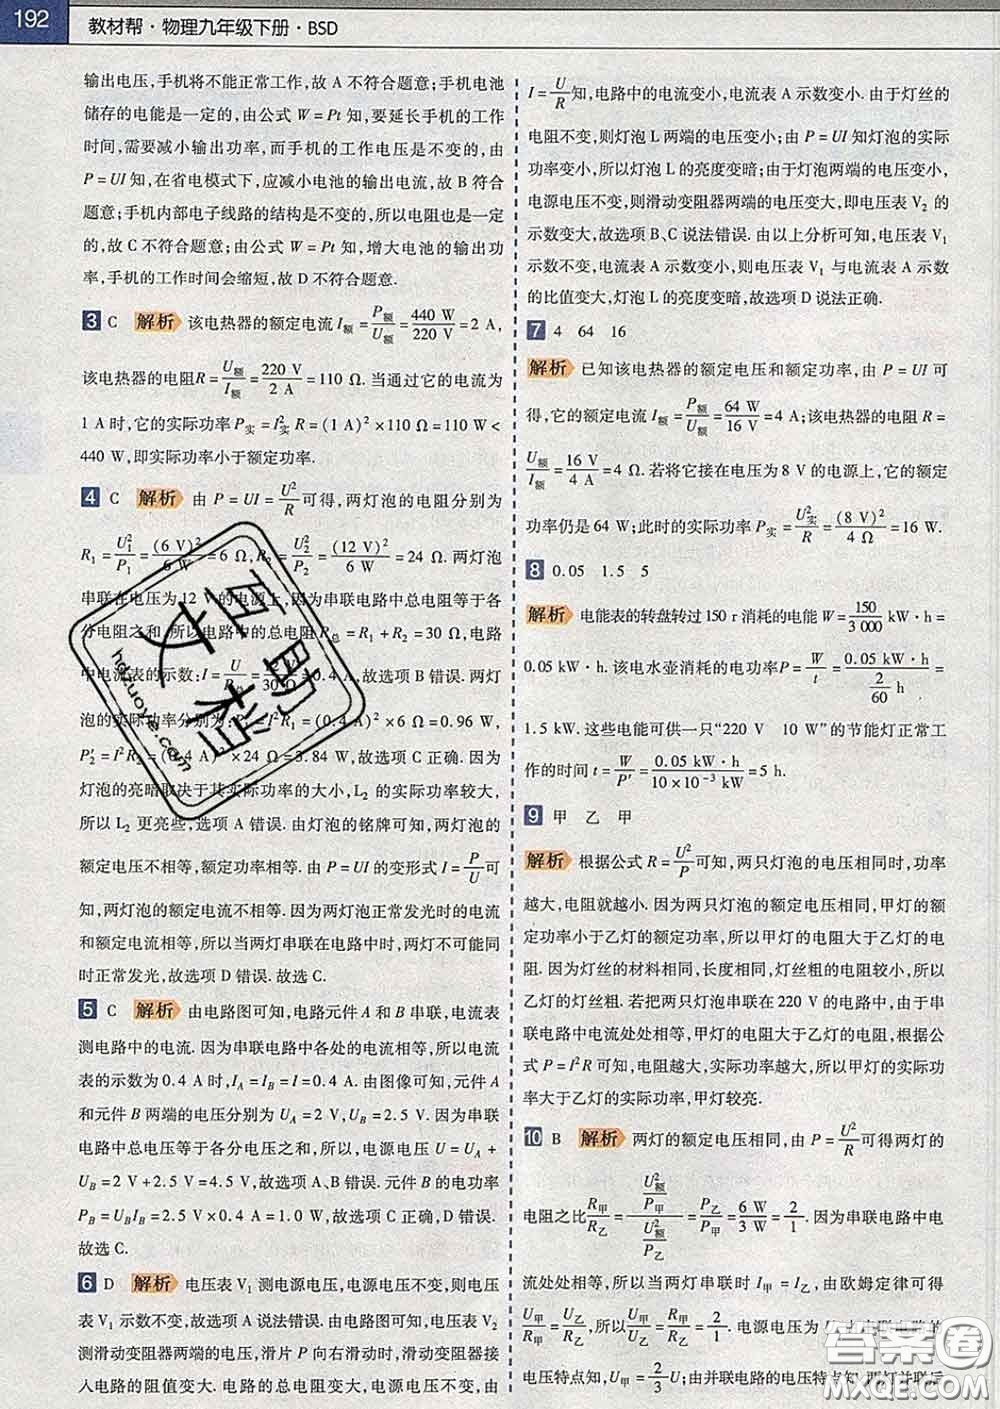 192 教材帮·物理九年级下册·BSD
输出电压,手机将不能正常工作,故 A 不符合题意;手机电池
储存的电能是一定的,由公式 W = Pt 知,要延长手机的工作
时间,需要减小输出功率,而手机的工作电压是不变的,由
P = UI 知,在省电模式下,应减小电池的输出电流,故 B 符合
题意;手机内部电子线路的结构是不变的,所以电阻也是一定
的,故 C 不符合题意;由公式 W = Pt 知,增大电池的输出功
率,手机的工作时间会缩短,故 D 不符合题意.
3 C 解析 该电热器的额定电流 I额 = P额/U额 = 440 W/220 V = 2 A,
该电热器的电阻 R = U额/I额 = 220 V/2 A = 110 Ω. 当通过它的电流为
1 A 时,它的实际功率 P实 = I²实 R = (1 A)² × 110 Ω = 110 W <
440 W,即实际功率小于额定功率.
4 C 解析 由 P = UI = U²/R 可得,两灯泡的电阻分别为
R₁ = U₁²/P₁ = (6 V)²/6 W = 6 Ω, R₂ = U₂²/P₂ = (12 V)²/6 W = 24 Ω. 两灯泡
串联在电压为 12 V 的电源上,因为串联电路中总电阻等于各
分电阻之和,所以电路中的总电阻 R总 = R₁ + R₂ = 30 Ω,电路
中电流表的示数: I = U/R = 12 V/30 Ω = 0.4 A,故选项 B 错误. 两灯
泡的实际功率分别为: P₁′ = I²R₁ = (0.4 A)² × 6 Ω = 0.96 W,
P₂′ = I²R₂ = (0.4 A)² × 24 Ω = 3.84 W,故选项 C 正确. 因为
灯泡的亮暗取决于其实际功率的大小, L₂ 的实际功率较大,
所以 L₂ 更亮些,选项 A 错误. 由灯泡的铭牌可知,两灯泡的
额定电压不相等,额定功率相等. 由 P = UI 的变形式 I = P/U 可
知,两灯泡的额定电流不相等. 因为两灯泡正常发光时的电流
和额定电流相等,所以当两灯串联在电路中时,两灯不可能同
时正常发光,故选项 D 错误. 故选 C.
5 C 解析 由电路图可知,电路元件 A 和 B 串联,电流表
测电路中的电流. 因为串联电路中各处的电流相等,所以电流
表的示数为 0.4 A 时, I_A = I_B = I = 0.4 A. 由图像可知,元件 A
和元件 B 两端的电压分别为 U_A = 2 V, U_B = 2.5 V. 因为串联
电路中总电压等于各分电压之和,所以,电源电压 U = U_A +
U_B = 2 V + 2.5 V = 4.5 V,故选项 A、B 错误. 元件 B 的电功率
P_B = U_B I_B = 2.5 V × 0.4 A = 1.0 W,故选项 C 正确,D 错误.
故选 C.
6 D 解析 电压表 V₁ 测电源电压,电源电压不变,则电压
表 V₁ 示数不变,故选项 A 说法错误. 由电路图知,电压表 V₂
测滑动变阻器两端的电压,滑片 P 向右滑动时,滑动变阻器接
入电路的阻值变大. 电路的总电阻变大,电源电压不变,由
I = U/R 知,电路中的电流变小,电流表 A 示数变小. 由于灯丝的
电阻不变,则灯泡 L 两端的电压变小;由 P = UI 知灯泡的实际
功率变小,所以灯泡 L 的亮度变暗;由于灯泡两端的电压变小,
电源电压不变,则滑动变阻器两端的电压变大,即电压表 V₂ 的
示数变大,故选项 B、C 说法错误. 由以上分析可知,电压表 V₁
示数不变,电流表 A 示数变小,则电压表 V₁ 与电流表 A 示数
的比值变大,灯泡 L 的亮度变暗,故选项 D 说法正确.
7 4 64 16
解析 已知该电热器的额定电压和额定功率,由 P = UI 可
得,它的额定电流 I额 = P额/U额 = 64 W/16 V = 4 A;该电热器的电阻 R =
U额/I额 = 16 V/4 A = 4 Ω. 若将它接在电压为 8 V 的电源上,它的额定
功率仍是 64 W;此时的实际功率 P实 = U²实/R = (8 V)²/4 Ω = 16 W.
8 0.05 1.5 5
解析 电能表的转盘转过 150 r 消耗的电能 W = 150/3 000 kW·h =
0.05 kW·h. 该电水壶消耗的电功率 P = W/t = 0.05 kW·h/(2/60 h) =
1.5 kW. 这些电能可供一只“220 V 10 W”的节能灯正常工
作的时间 t = W/P′ = 0.05 kW·h/(10 × 10⁻³ kW) = 5 h.
9 甲 乙 甲
解析 根据公式 R = U²/P 可知,两只灯泡的电压相同时,功率
越大,电阻就越小. 因为两只灯泡的额定电压相同,甲灯的额
定功率小于乙灯的额定功率,所以甲灯的电阻大于乙灯的电
阻. 因为灯丝的材料相同,长度相同,灯丝粗的电阻小,所以
乙灯的灯丝粗. 若把两只灯泡串联在 220 V 的电路中,由于串
联电路中电流处处相等,甲灯的电阻大于乙灯的电阻,根据公
式 P = I²R 可知,电阻越大,实际功率越大,所以甲灯的实际功
率大于乙灯的实际功率,甲灯较亮.
10 B 解析 两灯的额定电压相同,由 P = U²/R 可得两灯的
电阻之比 R甲/R乙 = (U²额/P甲)/(U²额/P乙) = P乙/P甲 = 6 W/3 W = 2/1. 因为串联电路中电
流处处相等,所以当两灯串联时 I甲 = I乙,由欧姆定律可得
U甲/R甲 = U乙/R乙,所以 U甲/U乙 = R甲/R乙 = 2/1. 电源电压为 U,由串联电路的
电压特点知, U甲 = 2/3 U;由并联电路的电压特点知,两灯并联后
早 文 档
hdzuoye.com
答案圈
MXQE.COM